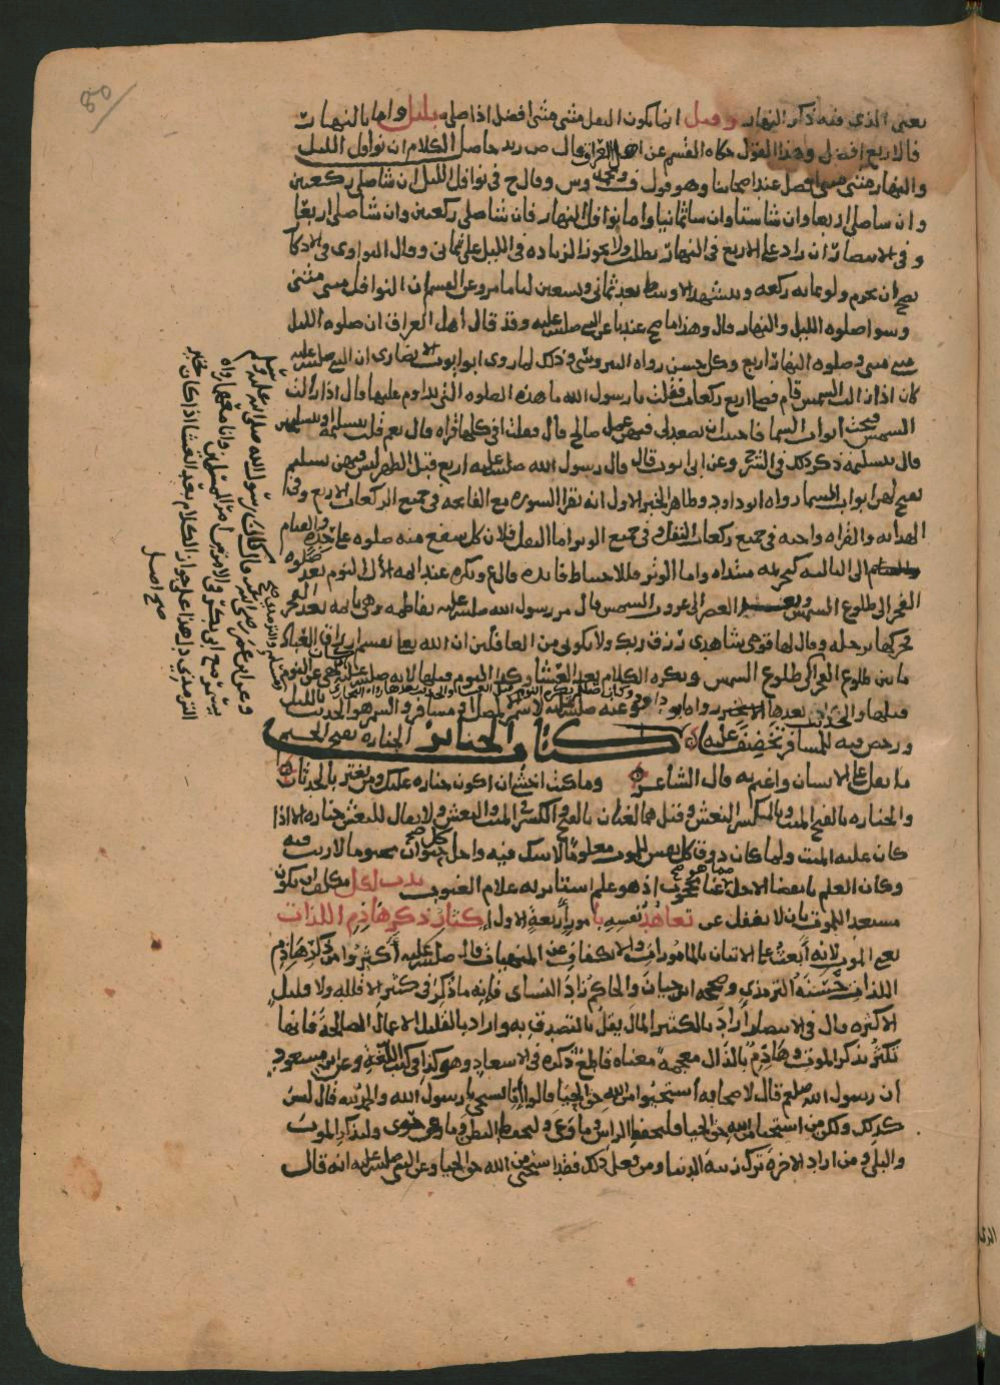 يعني الذي فيه ذكر النهار وقيل انما يكون النفل مثنى مثنى افضل اذا صلي بليل واما بالنهار
فالاربع افضل وهذا القول حكاه عن اهل العراق وقال ص زيد حاصل الكلام ان نوافل الليل
والنهار مثنى مثنى افضل عند اصحابنا وهو قول ف ومحمد وس وقال ح في نوافل الليل ان شا صلى ركعتين
وان شا صلى اربعا وان شا ستا وان شا ثمانيا واما نوافل النهار فان شا صلى ركعتين وان شا صلى اربعا
وفي الانتصار ان زاد على الاربع في النهار بطلت ولا يجوز الزيادة في الليل على ثماني وقال النواوي في الاذكار
يصح ان يحرم ولو بمايه ركعه ويتشهد الاوسط بعد ثماني وتسعين لنا ما مر وعن القسم ان النوافل مثنى مثنى
وسوا صلوه الليل والنهار قال وهذا ما صح عندنا عن النبي صلى الله عليه وقد قال اهل العراق ان صلوه الليل
مثنى مثنى وصلوه النهار اربع وكل حسن رواه وذلك لما روى ابو ايوب الانصاري ان النبي صلى الله عليه
كان اذا زالت الشمس قام فصلى اربع ركعات فقلت يا رسول الله ما هذه الصلوه التي تداوم عليها قال اذا زالت
الشمس فتحت ابواب السما فاحب ان يصعد لي فيهن عمل صالح قال فقلت افي كلها قراه قال نعم قلت بتسليمة او تسليمتين
قال بتسليمه ذكر ذلك في الشرح وعن ابي ايوب قال قال رسول الله صلى الله عليه اربع قبل الظهر ليس فيهن تسليم
تفتح لهن ابواب السما رواه ابو داود وظاهر الخبر الاول انه تقرا السوره مع الفاتحه في جميع الركعات الاربع وفي
الهدايه والقراه واجبه في جميع ركعات النفل وفي جميع الوتر اما النفل فلان كل شفع منه صلوه على حده والقيام
الى الثالثه كتحريمه مبتداه واما الوتر فللاحتياط فايده قال ع ويكره عند النوم بعد صلوه
الفجر الى طلوع الشمس وبعد العصر الى غروب الشمس قال مر رسول الله صلى الله عليه بفاطمه وهي نايمه بعد الفجر
فحركها برجله وقال لها قومي شاهدي رزق ربك ولا تكوني من الغافلين ان الله تعالى يقسم ارزاق العباد
ما بين طلوع الفجر الى طلوع الشمس ويكره الكلام بعد العشا وكذا النوم قبلها لانه صلى الله عليه نهى عن النوم
قبلها والحديث بعدها رواه ابو داود وعنه صلى الله عليه لا سمر الا لمصل او مسافر والسمر هو الحديث بالليل
ورخص فيه للمسافر تخفيفا عليه كتاب الجنائز الجنازه بفتح الجيم
ما ثقل على الانسان واغتم به قال الشاعر وما كنت اخشى ان اكون جنازه عليك ومن يغتر بالحدثان
والجنازه بالفتح الميت وبالكسر النعش وقيل هما لغتان بالفتح والكسر في الميت والنعش ولا يقال للنعش جنازه الا اذا
كان عليه الميت ولما كان ذوق كل نفس للموت معلوما لا شك فيه واجل كل حيوان محتوما لا ريب فيه
وكان العلم بانقضا الاجل مما هو عنا محجوب اذ هو علم استاثر به علام الغيوب ندب لكل مكلف ان يكون
مستعدا للموت بان لا يغفل عن تعاهد نفسه بامور اربعة الاول اكثار ذكر هاذم اللذات
يعني الموت لانه ابعث على الاتيان بالمامورات والانكفاف عن المنهيات قال صلى الله عليه اكثروا من ذكر هاذم
اللذات حسنه الترمذي وصححه ابن حبان والحاكم زاد النساي فانه ما ذكر في كثير الا قلله ولا قليل
الا كثره قال في الانتصار اراد بالكثير المال يقل بالتصدق به واراد بالقليل الاعمال الصالحة فانها
تكثر بذكر الموت وهاذم بالذال معجمة معناه قاطع ذكره في الاسعاد وهو كذا في كتب اللغة وعن ابن مسعود
ان رسول الله صلعم قال لاصحابه استحيوا من الله حق الحيا قالوا انا نستحي يا رسول الله والحمد لله قال ليس
كذلك ولكن من استحيا من الله حق الحيا فليحفظ الراس وما وعى وليحفظ البطن وما حوى وليذكر الموت
والبلى ومن اراد الاخرة ترك زينة الدنيا ومن فعل ذلك فقد استحيى من الله حق الحيا وعن النبي صلى الله عليه انه قال
وعن عمر رضي الله عنه قال كان رسول الله صلى الله عليه وسلم
يسمر مع ابي بكر في الامر من امر المسلمين وانا معهما رواه
الترمذي دل هذا على جواز الكلام بعد العشا اذا كان خير
صح اصل
80